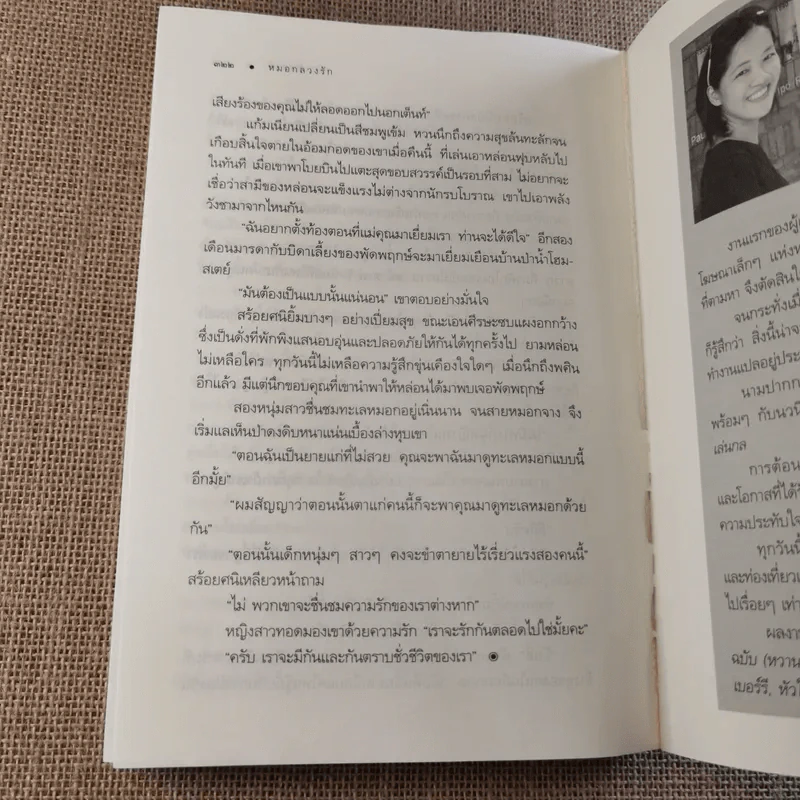 ๓๒๒ • หมอกลวงรัก
เสียงร้องของคุณไม่ให้ลอดออกไปนอกเต็นท์"
แก้มเนียนเปลี่ยนเป็นสีชมพูเข้ม หวนนึกถึงความสุขล้นทะลักจน
เกือบสิ้นใจตายในอ้อมกอดของเขาเมื่อคืนนี้ ที่เล่นเอาหล่อนฟุบหลับไป
ในทันที เมื่อเขาพาโบยบินไปแตะสุดขอบสวรรค์เป็นรอบที่สาม ไม่อยากจะ
เชื่อว่าสามีของหล่อนจะแข็งแรงไม่ต่างจากนักรบโบราณ เขาไปเอาพลัง
วังชามาจากไหนกัน
"ฉันอยากตั้งท้องตอนที่แม่คุณมาเยี่ยมเรา ท่านจะได้ดีใจ" อีกสอง
เดือนมารดากับบิดาเลี้ยงของพัดพฤกษ์จะมาเยี่ยมเยือนบ้านป่าน้ำโฮม-
สเตย์
"มันต้องเป็นแบบนั้นแน่นอน" เขาตอบอย่างมั่นใจ
สร้อยศนิยิ้มบางๆ อย่างเปี่ยมสุข ขณะเอนศีรษะซบแผงอกกว้าง
ซึ่งเป็นดั่งที่พักพิงแสนอบอุ่นและปลอดภัยให้กันได้ทุกครั้งไป ยามหล่อน
ไม่เหลือใคร ทุกวันนี้ไม่เหลือความรู้สึกขุ่นเคืองใจใดๆ เมื่อนึกถึงพศิน
อีกแล้ว มีแต่นึกขอบคุณที่เขานำพาให้หล่อนได้มาพบเจอพัดพฤกษ์
สองหนุ่มสาวชื่นชมทะเลหมอกอยู่เนิ่นนาน จนสายหมอกจาง จึง
เริ่มแลเห็นป่าดงดิบหนาแน่นเบื้องล่างหุบเขา
"ตอนฉันเป็นยายแก่ที่ไม่สวย คุณจะพาฉันมาดูทะเลหมอกแบบนี้
อีกมั้ย"
"ผมสัญญาว่าตอนนั้นตาแก่คนนี้ก็จะพาคุณมาดูทะเลหมอกด้วย
กัน"
"ตอนนั้นเด็กหนุ่มๆ สาวๆ คงจะขำตายายไร้เรี่ยวแรงสองคนนี้"
สร้อยศนิเหลียวหน้าถาม
"ไม่ พวกเขาจะชื่นชมความรักของเราต่างหาก"
หญิงสาวทอดมองเขาด้วยความรัก "เราจะรักกันตลอดไปใช่มั้ยคะ"
"ครับ เราจะมีกันและกันตราบชั่วชีวิตของเรา"
งานแรกของ
โฆษณาเล็กๆ แห่ง
ที่ตามหา จึงตัดสินใ
จนกระทั่งเมื่
ก็รู้สึกว่า สิ่งนี้น่าจ
ทำงานแปลอยู่ประ
นามปากก
พร้อมๆ กับนวนิ
เล่นกล
การต้อน
และโอกาสที่ได้รั
ความประทับใจ
ทุกวันนี้
และท่องเที่ยว
ไปเรื่อยๆ เท่า
ผลงา
ฉบับ (หวาน
เบอร์รี, หัวใ